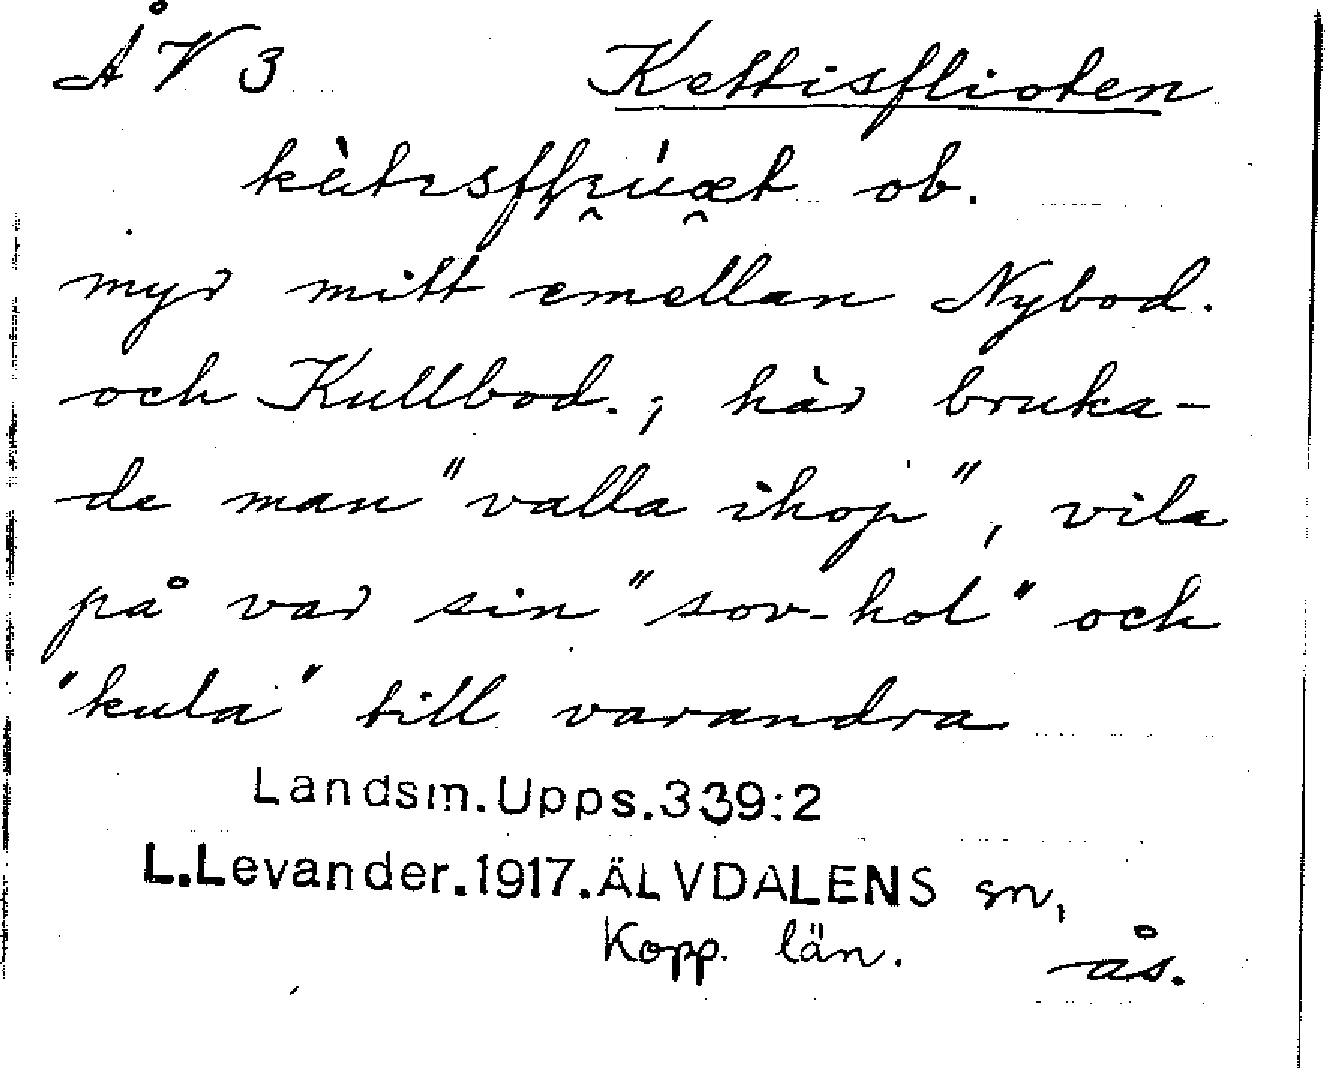 ÅV3 Kettisflioten
ob.
myr mitt emellan Nybod.
och Kullbod.; här bruka-
de man "valla ihop", vila
på var sin "sov-hol" och
"kula" till varandra
Landsm.Upps.339:2
L.Levander.1917.ÄLVDALENS sn,
Kopp. län. ås.